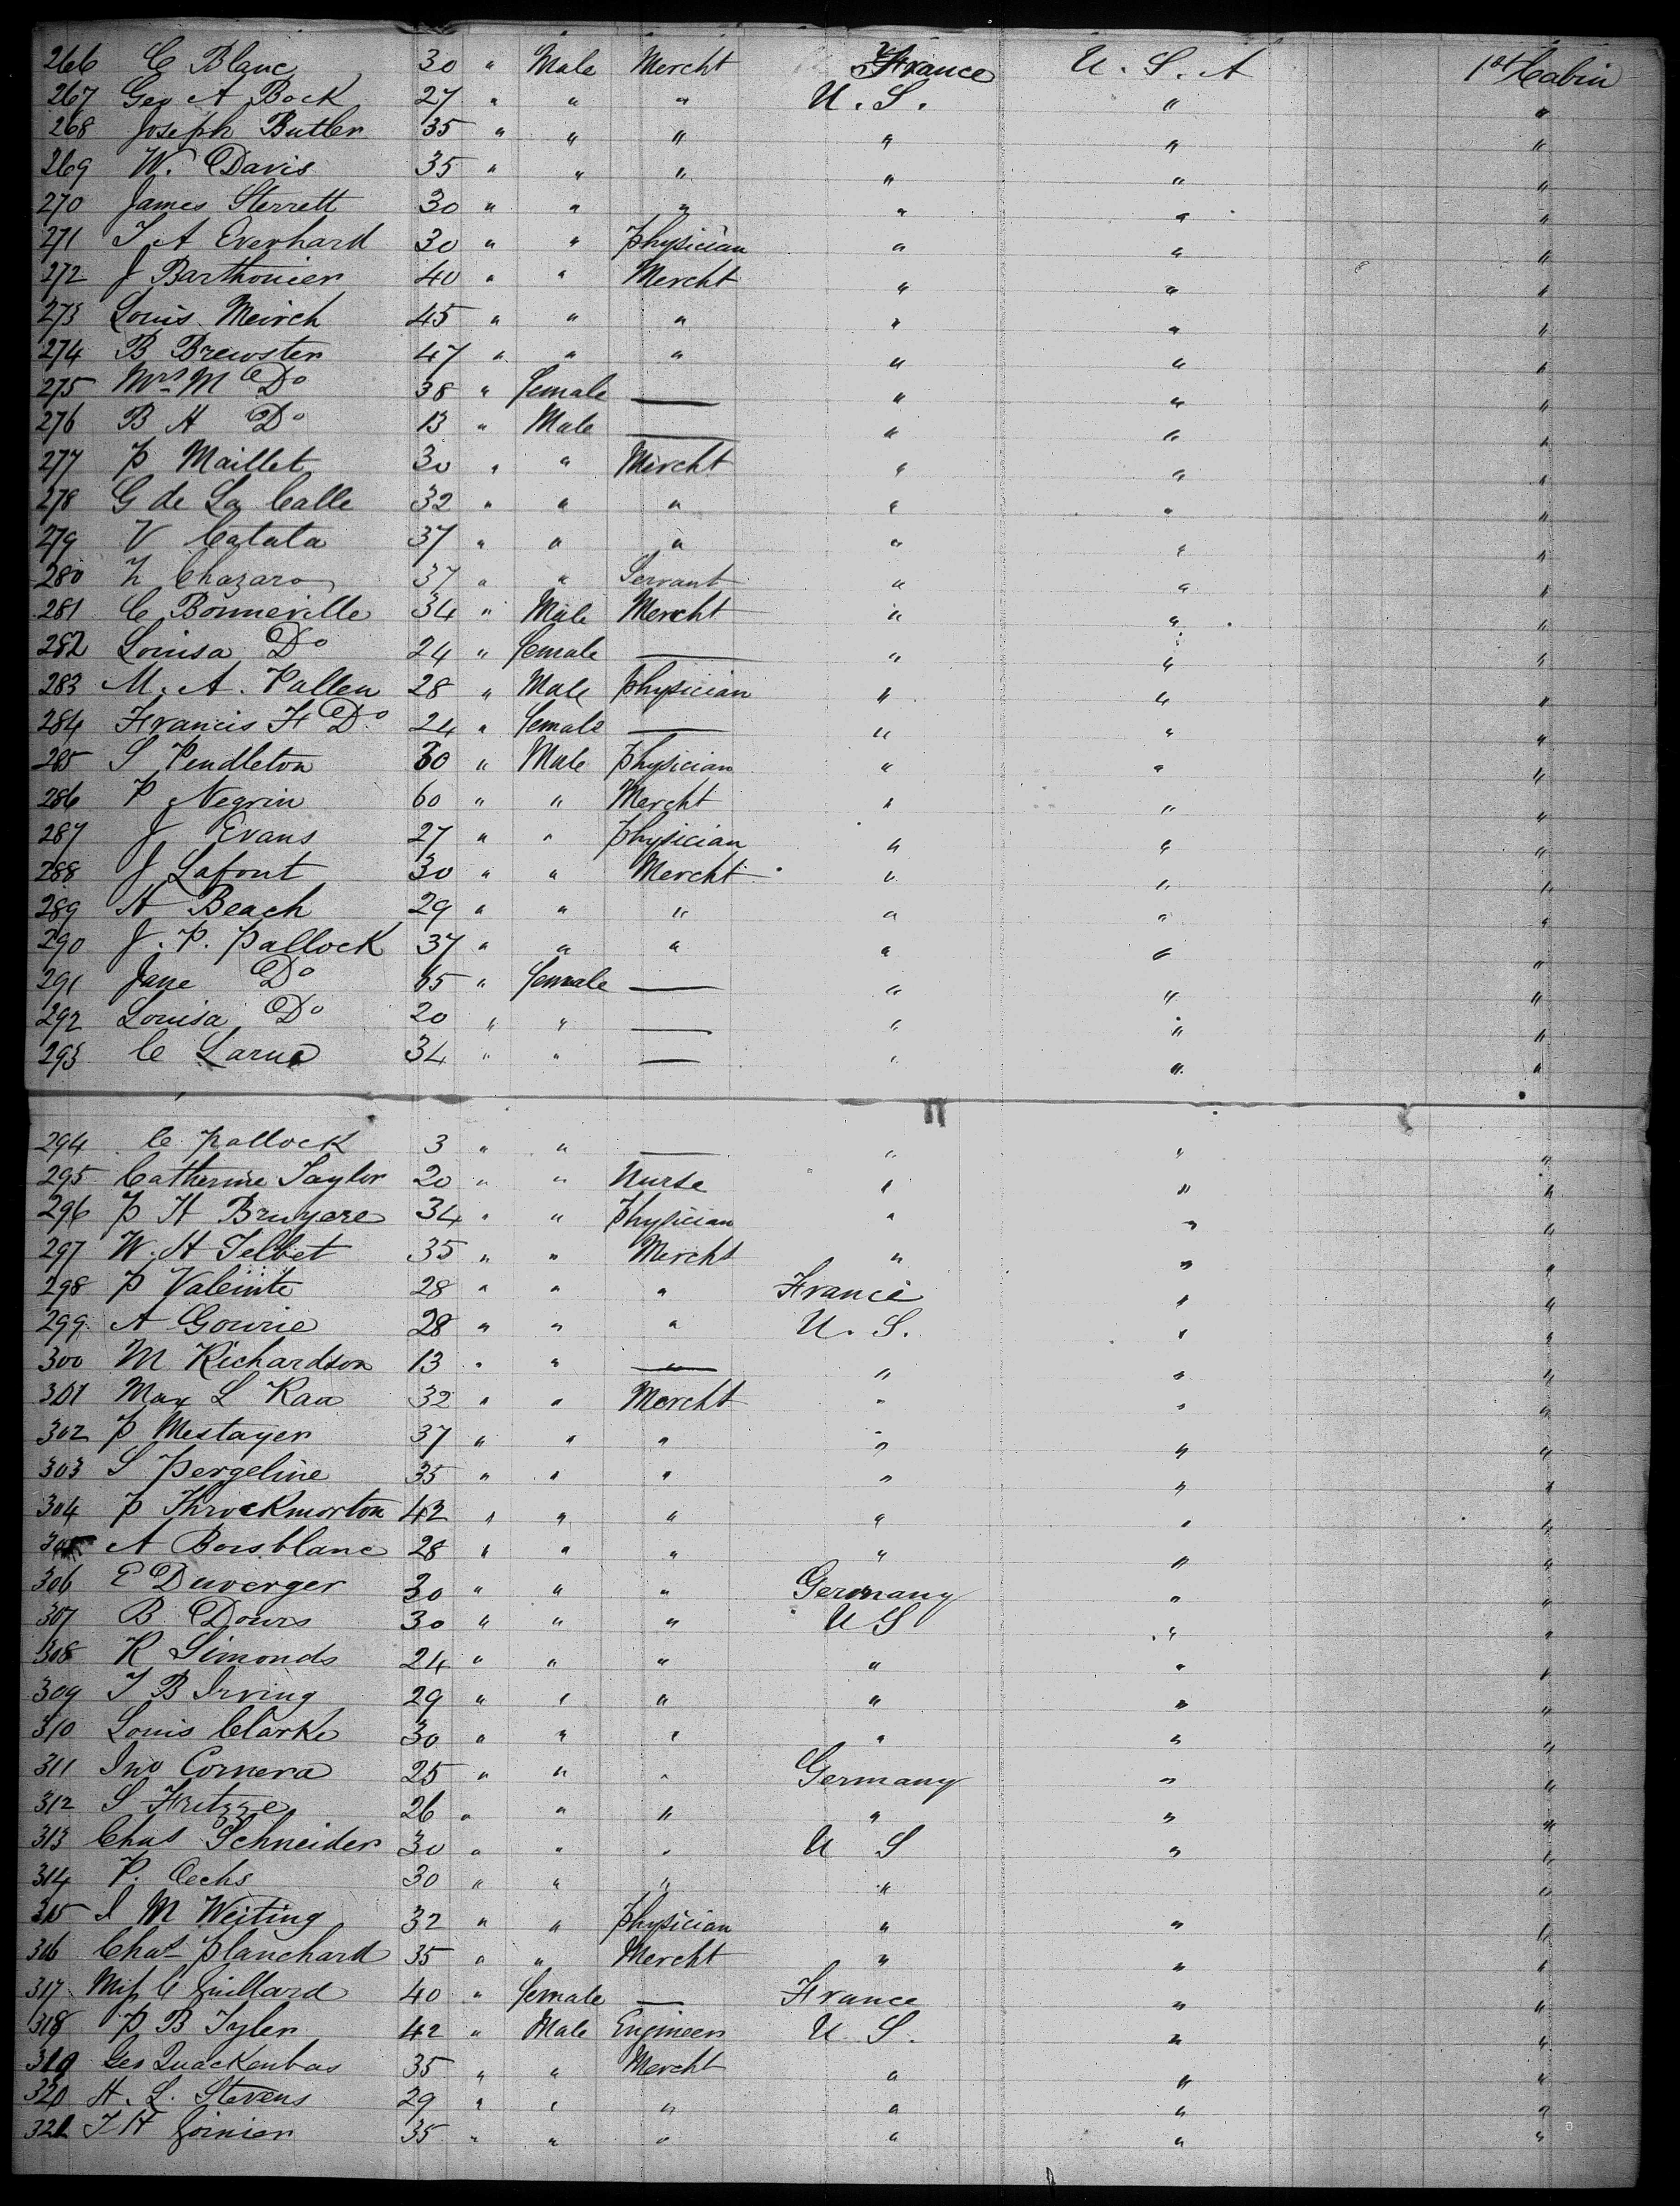 266 C Blanc 30 " Male Mercht France U. S. A 1st Cabin
267 Geo A Bock 27 " " " U. S. " "
268 Joseph Butler 35 " " " " " "
269 W. Davis 35 " " " " " "
270 James Sterrett 30 " " " " " "
271 T A Everhard 30 " " Physician " " "
272 J Barthouier 40 " " Mercht " " "
273 Louis Meirch 45 " " " " " "
274 B Brewster 47 " " " " " "
275 Mrs M Do 38 " female — " " "
276 B H Do 13 " Male — " " "
277 P Maillet 30 " " Mercht " " "
278 G de La Calle 32 " " " " " "
279 V Catala 37 " " " " " "
280 Z Chazaro 37 " " Servant " " "
281 C Bonneville 34 " Male Mercht " " "
282 Louisa Do 24 " female — " " "
283 M. A. Pallen 28 " Male Physician " " "
284 Francis H Do 24 " female — " " "
285 S Pendleton 30 " Male Physician " " "
286 P Negrin 60 " " Mercht " " "
287 J Evans 27 " " Physician " " "
288 J Lafont 30 " " Mercht " " "
289 A Beach 29 " " " " " "
290 J. P. Pallock 37 " " " " " "
291 Jane Do 65 " female — " " "
292 Louisa Do 20 " " — " " "
293 C Larue 34 " " — " " "
294 C Pallock 3 " " — " " "
295 Catherine Taylor 20 " " Nurse " " "
296 P H Bruyere 34 " " Physician " " "
297 W. H Telbet 35 " " Mercht " " "
298 P Valeinte 28 " " " France " "
299 A Gourie 28 " " " U. S. " "
300 M Richardson 13 " " — " " "
301 Max L Raa 32 " " Mercht " " "
302 P Mestayer 37 " " " " " "
303 S Pergeline 35 " " " " " "
304 P Throckmorton 42 " " " " " "
305 A Boisblanc 28 " " " " " "
306 E Duverger 30 " " " Germany " "
307 B Dours 30 " " " U S " "
308 R Simonds 24 " " " " " "
309 T B Irving 29 " " " " " "
310 Louis Clarke 30 " " " " " "
311 Jno Cornera 25 " " " Germany " "
312 S Fritzze 26 " " " " " "
313 Chas Schneider 30 " " " U S " "
314 P. Oechs 30 " " " " " "
315 I M Weiting 32 " " Physician " " "
316 Chas Planchard 35 " " Mercht " " "
317 Miss C Guillard 40 " female — France " "
318 P B Tyler 42 " Male Engineer U S. " "
319 Geo Quackenbas 35 " " Mercht " " "
320 H. L. Stevens 29 " " " " " "
321 T H Goinier 35 " " " " " "